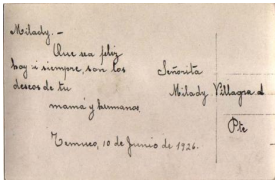 Milady. -
Que sea feliz
hoy i siempre, son los
deseos de tu
mamá y hermanos
Temuco, 10 de Junio de 1926.
Señorita
Milady Villagra d
Pte